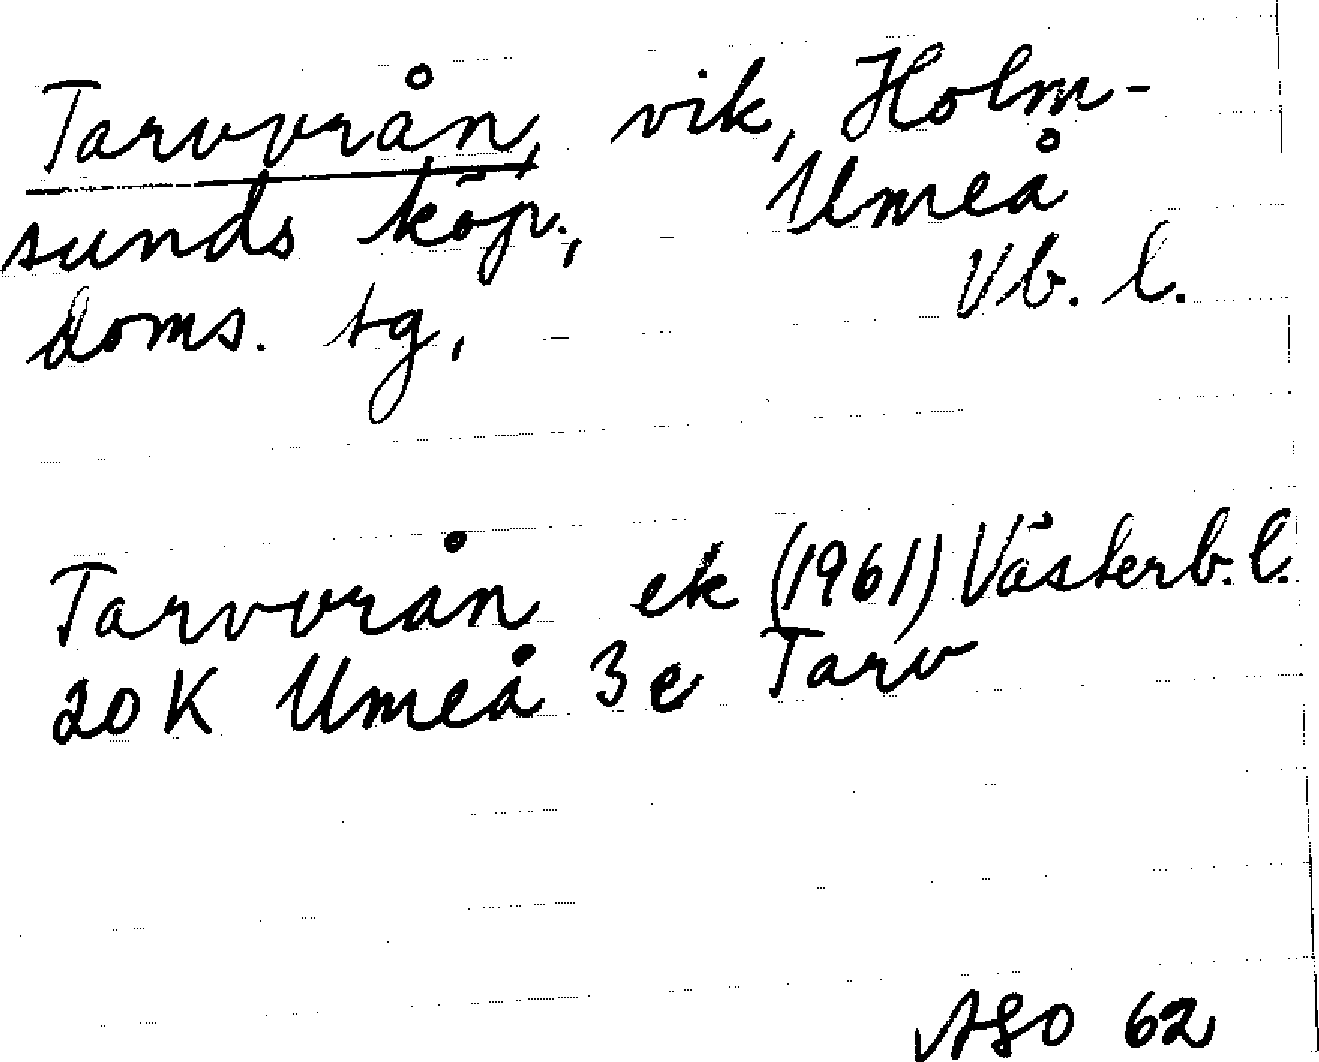 Tarvvrån, vik, Holm-
sunds köp., Umeå
doms. tg, Vb. l.
Tarvvrån ek (1961) Västerb. l.
20K Umeå 3c Tarv
ASO 62